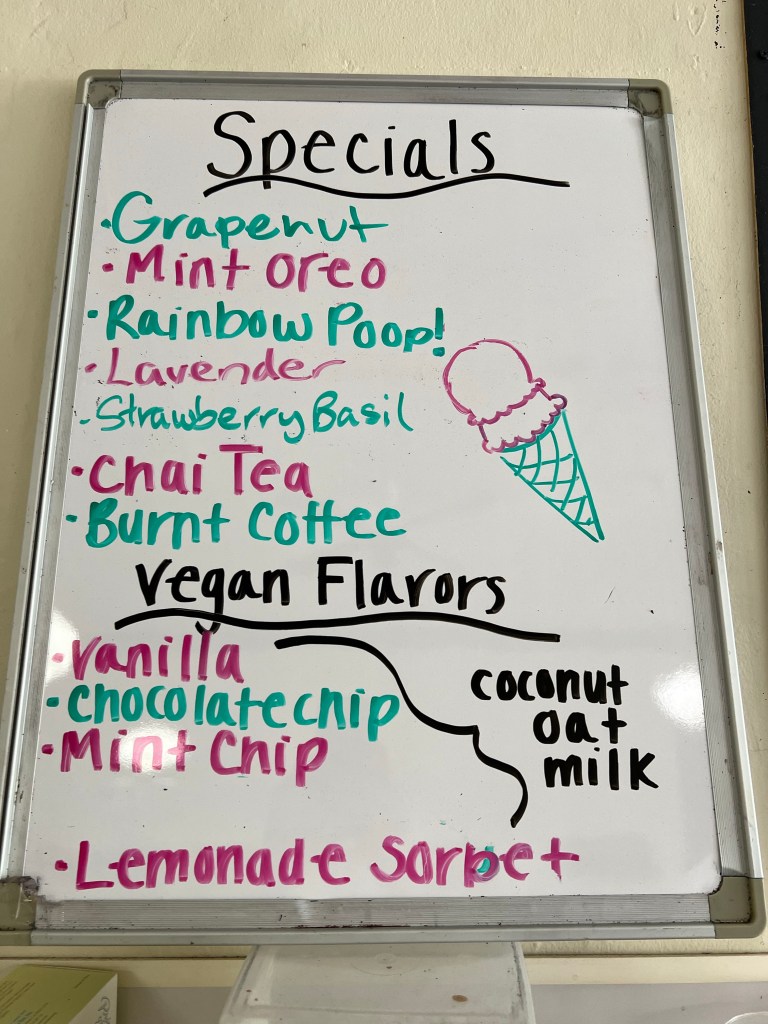 Specials
·Grapenut
·Mint Oreo
·Rainbow Poop!
·Lavender
·Strawberry Basil
·Chai Tea
·Burnt Coffee
Vegan Flavors
·Vanilla
·Chocolate chip
·Mint Chip
coconut
oat
milk
·Lemonade Sorbet